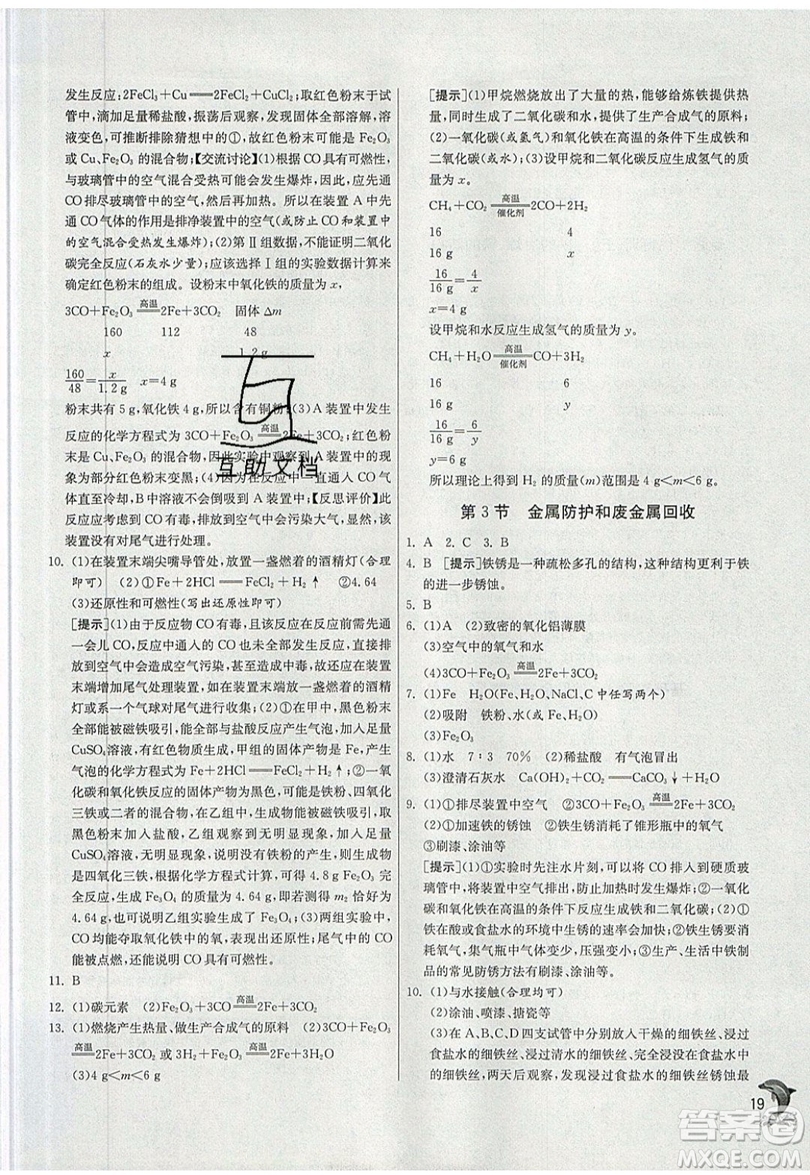 发生反应;2FeCl₃+Cu══2FeCl₂+CuCl₂;取红色粉末于试
管中,滴加足量稀盐酸,振荡后观察,发现固体全部溶解,
溶液变色,可推断排除猜想中的①,故红色粉末可能是 Fe₂O₃
或 Cu、Fe₂O₃ 的混合物;【交流讨论】(1)根据 CO 具有可燃性,
与玻璃管中的空气混合受热可能发生爆炸,故应先通
CO 排尽玻璃管中的空气。所以在装置 A 中先
通 CO 气体的作用是排净装置中的空气(或防 CO 和装置中
的空气混合受热发生爆炸);(2)第Ⅱ组数据,不能证明二氧化
碳完全反应(石灰水少量);应该选择Ⅰ组的实验数据计算来
确定红色粉末的组成。设粉末中氧化铁的质量为 x,
3CO+Fe₂O₃ ═高温═ 2Fe+3CO₂ 固体 Δm
160 112 48
x 1.2 g
160/48=x/1.2 g x=4 g
粉末共有 5 g,氧化铁 4 g,所以含有铜粉;(3)A 装置中发生
反应的化学方程式为 3CO+Fe₂O₃ ═高温═ 2Fe+3CO₂;红色
粉末为氧化铁,因此实验中观察到的 A 装置中出现的现
象为部分红色粉末变黑;因实验结束后,直通入 CO
体,B 中溶液不会倒吸到 A 装置中;【反思评价】此实
验方案造成大量一氧化碳排放到空气中污染空气,故该
装置应对尾气进行处理。
10. (1)在装置末端尖嘴导管处,放置一盏燃着的酒精灯(合理
即可) (2)①Fe+2HCl══FeCl₂+H₂↑ ②4.64
(3)还原性和可燃性(写出还原性即可)
[提示](1)由于反应物 CO 有毒,在反应前需先通
一会儿 CO,反应中通入的 CO 也未全部反应,直接
排放到空气中造成空气污染,甚至造成中毒,故应在装置
末端增加尾气处理装置,如在装置末端放一盏燃着的酒精
灯(或系一个气球对尾气进行收集);(2)甲组生成物固体
全部能被磁铁吸引,能与盐酸反应产生气泡,加入足量
CuSO₄ 溶液,有红色固体产生,甲组的固体产物为 Fe,产生气
泡的化学方程式为 Fe+2HCl══FeCl₂+H₂↑;加入足量
CuSO₄ 溶液,②一氧化碳还原氧化铁的固体产物为黑色,可能是铁粉、四氧化
三铁或二者的混合物,在乙组中,生成物能被磁铁吸引,取
黑色粉末加入盐酸,乙组观察到无明显现象,加入足量
CuSO₄ 溶液,无明显现象,说明没有铁粉,故产物为
四氧化三铁,根据化学方程式计算,可得 4.8 g Fe₂O₃ 完全反
应,生成 Fe₃O₄ 的质量为 4.64 g,即若测得 m₂ 恰好为
4.64 g,也可说明乙组实验生成了 Fe₃O₄;(3)两组实验中,
CO 均能夺取氧化铁中的氧,表现出还原性;尾气中的 CO
能被点燃,还可说明 CO 具有可燃性。
11. B
12. (1)碳元素 (2)Fe₂O₃+3CO ═高温═ 2Fe+3CO₂
13. (1)燃烧产生热量、做生产合成气的原料 (2)3CO+
Fe₂O₃ ═高温═ 2Fe+3CO₂ 或 3H₂+Fe₂O₃ ═高温═ 2Fe+3H₂O
(3)4 g<m<6 g
[提示](1)甲烷燃烧放出了大量的热,能够给炼铁提供热
量,同时生成了二氧化碳和水,提供了生产合成气的原料;
(2)一氧化碳(或氢气)和氧化铁在高温的条件下生成铁和
二氧化碳(或水);(3)设甲烷和二氧化碳反应生成氢气的质
量为 x。
CH₄+CO₂ ═高温/催化剂═ 2CO+2H₂
16 4
16 g x
16/16 g=4/x
x=4 g
设甲烷和水反应生成氢气的质量为 y。
CH₄+H₂O ═高温/催化剂═ CO+3H₂
16 6
16 g y
16/16 g=6/y
y=6 g
所以理论上得到 H₂ 的质量(m)范围是 4 g<m<6 g。
第 3 节 金属防护和废金属回收
1. A 2. C 3. B
4. B [提示]铁锈是一种疏松多孔的结构,这种结构不利于铁
的进一步锈蚀。
5. B
6. (1)A (2)致密的氧化铝薄膜
(3)空气中的氧气和水
(4)3CO+Fe₂O₃ ═高温═ 2Fe+3CO₂
7. (1)Fe H₂O(Fe、H₂O、NaCl、C 中任写两个)
(2)吸附 铁粉、水
(3)Fe₂O₃
8. (1)水 7∶3 70% (2)稀盐酸 有气泡冒出
(3)澄清石灰水 Ca(OH)₂+CO₂══CaCO₃↓+H₂O
9. (1)①排尽装置中空气 ②3CO+Fe₂O₃ ═高温═ 2Fe+3CO₂
(2)①加速铁的锈蚀 ②铁生锈消耗了锥形瓶中的氧气
③刷漆、涂油等
[提示](1)①实验时先注水片刻,可以将 CO 排入到硬质玻
璃管中,将装置中的空气排出,防止加热时发生爆炸;②一氧
化碳和氧化铁在高温的条件下反应生成铁和二氧化碳;(2)①
铁在酸或食盐水的环境中生锈的速率会加快;②铁生锈要
消耗氧气,集气瓶中气体变少,压强变小;③生活中铁制品
的常见防锈方法有刷漆、涂油等。
10. (1)与水接触(合理均可)
(2)涂油、喷漆、搪瓷等
(3)在 A、B、C、D 四支试管中分别放入干燥的细铁丝、浸过
食盐水的细铁丝、浸过清水的细铁丝、完全浸没在食盐水中
的细铁丝,两天后观察,发现浸过食盐水的细铁丝锈蚀最
互助文档
答案卷
MXQE.COM
19